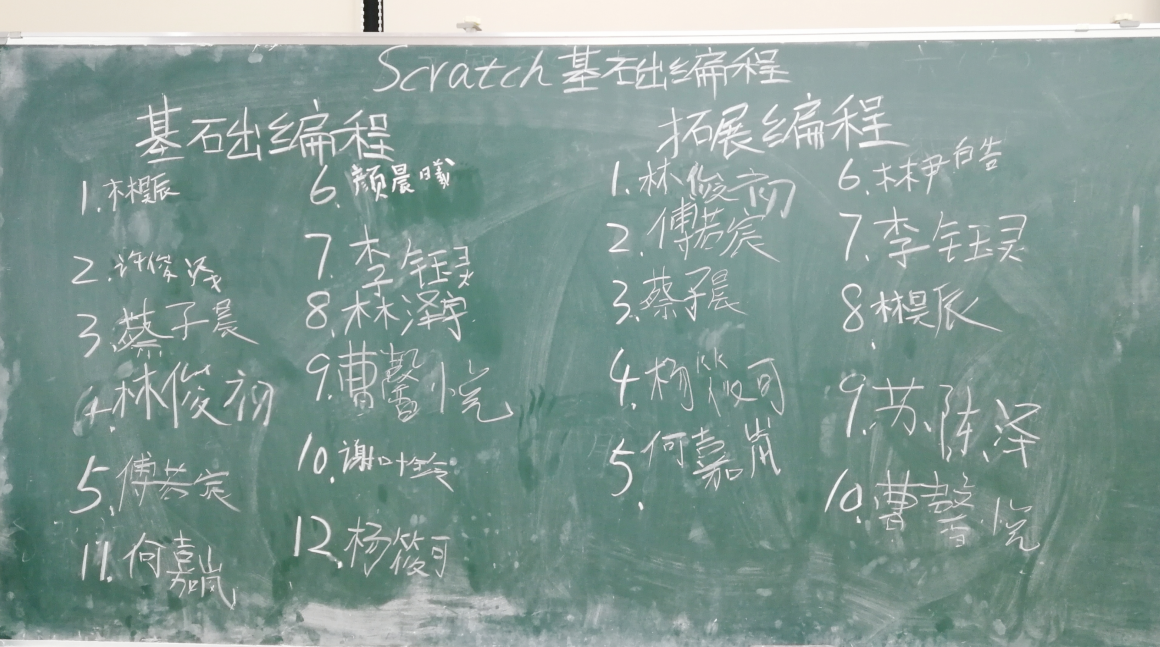 Scratch基础编程
基础编程
1.林昆辰
2.许俊
3.蔡子晨
4.林俊初
5.傅若宸
11.何嘉岚
6.颜晨曦
7.李钰灵
8.林泽宇
9.曹馨悦
10.谢叶
12.杨筱可
拓展编程
1.林俊初
2.傅若宸
3.蔡子晨
4.杨筱可
5.何嘉岚
6.林尹皓
7.李钰灵
8.林昆辰
9.苏陈泽
10.曹馨悦